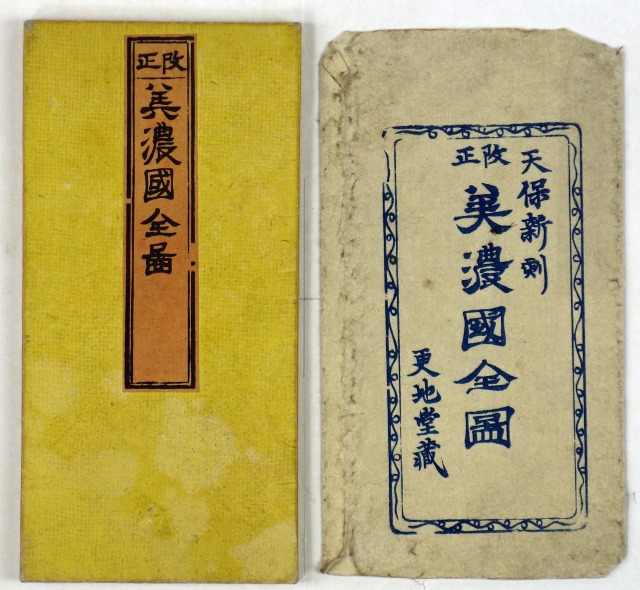 改正
美濃國全啚
天保新刻
改正
美濃國全圖
更地堂藏